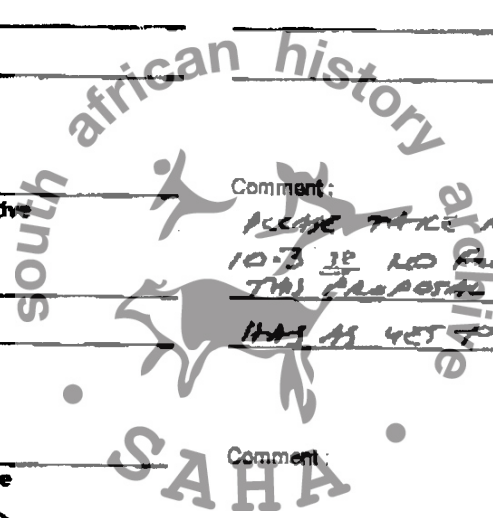 south african history archive
SAHA
Comment:
PLEASE
10.3 IE NO
THIS PROPOSAL
HAS AS YET
Comment: